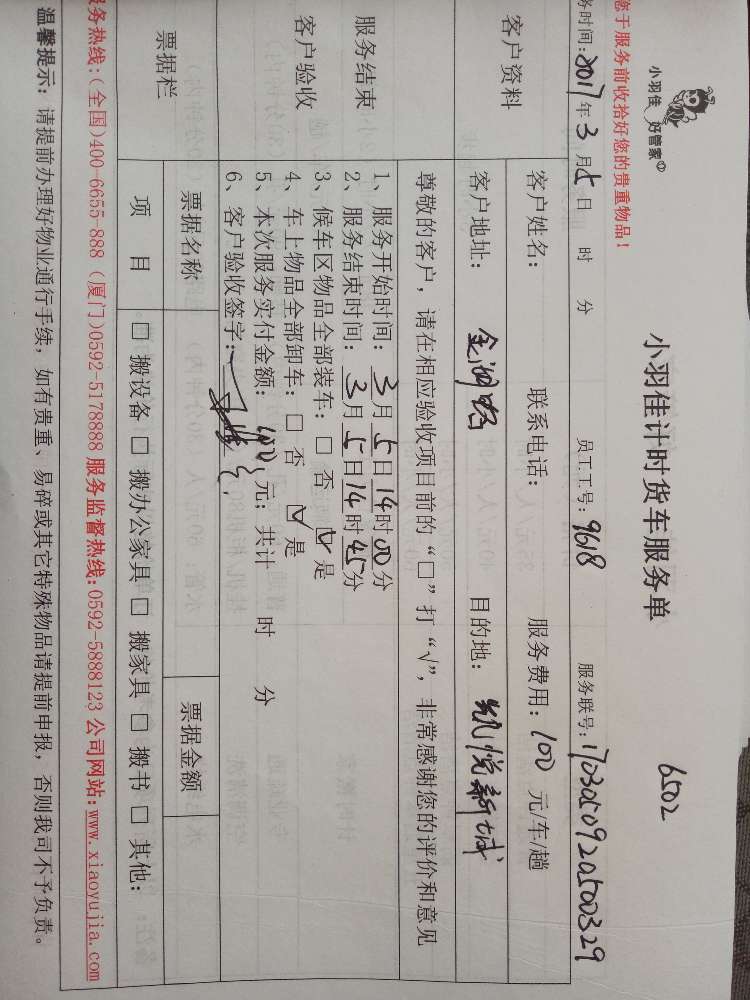 小羽佳 好管家
小羽佳计时货车服务单
6502
您于服务前收拾好您的贵重物品!
务时间:2017年3月5日 时 分 员工工号:9618 服务联号:1703050920500329
客户资料
客户姓名: 联系电话: 服务费用:100 元/车/趟
客户地址: 目的地: 凯悦新城
尊敬的客户,请在相应验收项目前的“□”打“√”,非常感谢您的评价和意见
服务结束
客户验收
1、服务开始时间:3月5日14时00分
2、服务结束时间:3月5日14时45分
3、候车区物品全部装车:□ 否 ☑ 是
4、车上物品全部卸车:□ 否 ☑ 是
5、本次服务实付金额:100元;共计 时 分
6、客户验收签字:
票据栏
票据名称 票据金额
项 目 □ 搬设备 □ 搬办公家具 □ 搬家具 □ 搬书 □ 其他:
服务热线:(全国)400-6655-888 (厦门)0592-5178888 服务监督热线:0592-5888123 公司网站:www.xiaoyujia.com
温馨提示: 请提前办理好物业通行手续,如有贵重、易碎或其它特殊物品请提前申报,否则我司不予负责。